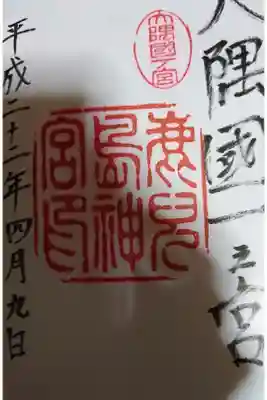 大隅國一之宮
大隅國一ノ宮
鹿兒
島神
宮印
平成二十二年四月九日